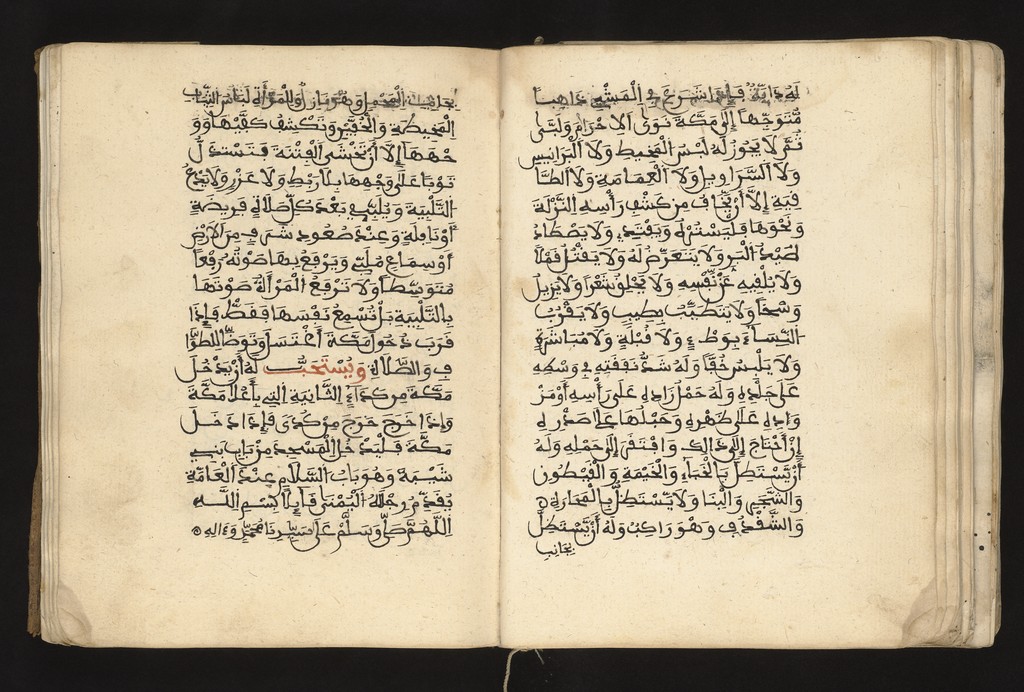 لَهُ دَابَّةٌ فَإِذَا شَرَعَ فِي الْمَشْيِ ذَاهِباً
مُّتَوَجِّهاً إِلَى مَكَّةَ نَوَى الْإِحْرَامَ وَلَبَّى
ثُمَّ لَا يَجُوزُ لَهُ لُبْسُ الْمَخِيطِ وَلَا الْبَرَانِيسِ
وَلَا السَّرَاوِيلِ وَلَا الْعِمَامَةِ وَلَا الطَّا
قِيَةِ إِلَّا أَنْ يَّخَافَ مِن كَشْفِ رَأْسِهِ النَّزْلَةَ
وَنَحْوَهَا فَلْيَسْتُرْهُ وَيَفْتَدِي وَلَا يَصْطَادُ
صَيْدَ الْبَرِّ وَلَا يَتَعَرَّضُ لَهُ وَلَا يَقْتُلُ قَمْلًا
وَلَا يُلْقِيهِ عَن نَّفْسِهِ وَلَا يَحْلِقُ شَعْراً وَلَا يُزِيلُ
وَسَخاً وَلَا يَتَطَيَّبُ بِطِيبٍ وَلَا يَقْرُبُ
النِّسَاءَ بِوَطْءٍ وَلَا قُبْلَةٍ وَلَا مُبَاشَرَةٍ
وَلَا يَلْبَسُ خُفّاً وَلَهُ شَدُّ نَفَقَتِهِ فِي وَسْطِهِ
عَلَى جِلْدِهِ وَلَهُ حَمْلُ زَادِهِ عَلَى رَأْسِهِ أَوْ مِزْ
وَادِهِ عَلَى ظَهْرِهِ وَحَبْلُهَا عَلَى صَدْرِهِ
إِنْ احْتَاجَ إِلَى ذَالِكَ وَافْتَقَرَ إِلَى حَمْلِهِ وَلَهُ
أَنْ يَّسْتَظِلَّ بِالْخِبَاءِ وَالْخَيْمَةِ وَالْقَيْطُونِ
وَالشَّجَرِ وَالْبِنَا وَلَا يَسْتَظِلُّ بِالْمَحَارَةِ
وَالشُّقْدُفِ وَهُوَ رَاكِبٌ وَلَهُ أَنْ يَّسْتَظِلَّ
بِجَانِبِ
بِجَانِبِ الْمَحْمِلِ وَهُوَ نَازِلٌ وَلِلْمَرْأَةِ لِبَاسُ الثِّيَابِ
الْمَخِيطَةِ وَالْخُفَّيْنِ وَتَكْشِفُ كَفَّيْهَا وَوَ
جْهَهَا إِلَّا أَنْ تَخْشَى الْفِتْنَةَ فَتَسْدُلُ
ثَوْباً عَلَى وَجْهِهَا بِلَا رَبْطٍ وَلَا غَرْزٍ وَلَا يَدَعُ
التَّلْبِيَةَ وَيُلَبِّي بَعْدَ كُلِّ صَلَاةٍ فَرِيضَةٍ
أَوْ نَافِلَةٍ وَعِنْدَ صُعُودِ شَرَفٍ مِنَ الْأَرْضِ
أَوْ سَمَاعِ مُلَبٍّ وَيَرْفَعُ بِهَا صَوْتَهُ رَفْعاً
مُتَوَسِّطاً وَلَا تَرْفَعُ الْمَرْأَةُ صَوْتَهَا
بِالتَّلْبِيَةِ بَلْ تُسْمِعُ نَفْسَهَا فَقَطْ فَإِذَا
قَرُبَ دُخُولُ مَكَّةَ اغْتَسَلَ وَتَوَضَّأَ لِلطَّوَا
فِ وَالصَّلَاةِ وَيُسْتَحَبُّ لَهُ أَنْ يَدْخُلَ
مَكَّةَ مِن كَدَاءِ الثَّانِيَةِ الَّتِي بِأَعْلَا مَكَّةَ
وَإِذَا خَرَجَ خَرَجَ مِن كُدَى فَإِذَا دَخَلَ
مَكَّةَ فَلْيَدْخُلِ الْمَسْجِدَ مِنْ بَابِ بَنِي
شَيْبَةَ وَهُوَ بَابُ السَّلَامِ عِنْدَ الْعَامَّةِ
يُقَدِّمُ رِجْلَهُ الْيُمْنَى قَائِلًا بِسْمِ اللَّهِ
اللَّهُمَّ صَلِّ وَسَلِّمْ عَلَى سَيِّدِنَا مُحَمَّدٍ وَءَالِهِ